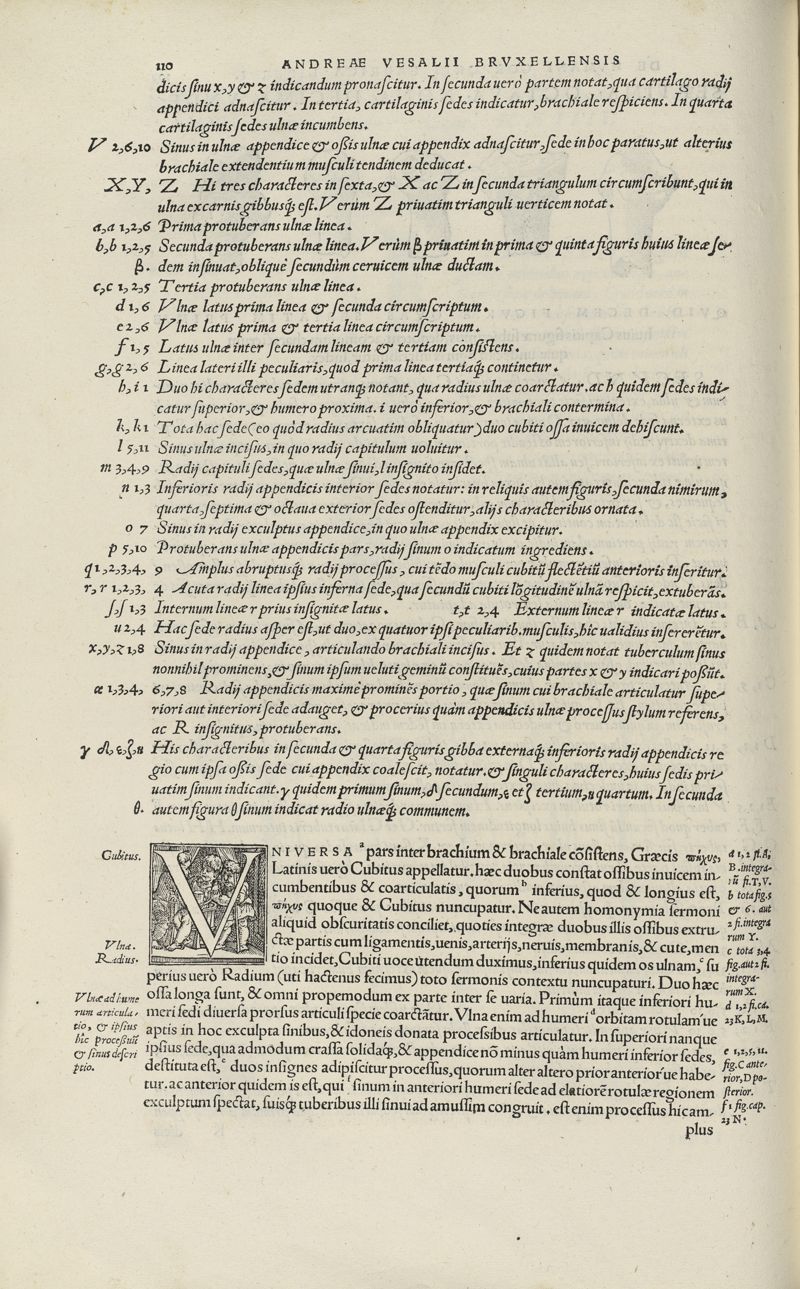 110 ANDREAE VESALII BRVXELLENSIS
dicis sinu x, y & z indicandum pronascitur. In secunda uerò partem notat, qua cartilago radij
appendici adnascitur. In tertia, cartilaginis sedes indicatur, brachiale respiciens. In quarta
cartilaginis sedes ulnæ incumbens.
V 2,6,10 Sinus in ulnæ appendice & ossis ulnæ cui appendix adnascitur, sede in hoc paratus, ut alterius
brachiale extendentium musculi tendinem deducat.
X, Y, Z Hi tres characteres in sexta, & X ac Z in secunda triangulum circumscribunt, qui in
ulna excarnis gibbusq́; est. Verùm Z priuatim trianguli uerticem notat.
a, a 1,2,6 Prima protuberans ulnæ linea.
b, b 1,2,5 Secunda protuberans ulnæ linea. Verùm β priuatim in prima & quinta figuris huius lineæ se-
β. dem insinuat, obliquè secundùm ceruicem ulnæ ductam.
c, c 1,2,5 Tertia protuberans ulnæ linea.
d 1,6 Vlnæ latus prima linea & secunda circumscriptum.
e 2,6 Vlnæ latus prima & tertia linea circumscriptum.
f 1,5 Latus ulnæ inter secundam lineam & tertiam consistens.
g, g 2,6 Linea lateri illi peculiaris, quod prima linea tertiaq́; continetur.
h, i 1 Duo hi characteres sedem utranq; notant, qua radius ulnæ coarctatur. ac h quidem sedes indi-
catur superior, & humero proxima. i uerò inferior, & brachiali contermina.
k, k 1 Tota hac sede (eo quòd radius arcuatim obliquatur) duo cubiti ossa inuicem dehiscunt.
l 5,11 Sinus ulnæ incisus, in quo radij capitulum uoluitur.
m 3,4,9 Radij capituli sedes, quæ ulnæ sinui, l insignito insidet.
n 1,3 Inferioris radij appendicis interior sedes notatur: in reliquis autem figuris, secunda nimirum,
quarta, septima & octaua exterior sedes ostenditur, alijs characteribus ornata.
o 7 Sinus in radij exculptus appendice, in quo ulnæ appendix excipitur.
p 5,10 Protuberans ulnæ appendicis pars, radij sinum o indicatum ingrediens.
q 1,2,3,4, 9 Amplus abruptusq́; radij processus, cui tēdo musculi cubitū flectētiū anterioris inseritur.
r, r 1,2,3, 4 Acuta radij linea ipsius inferna sede, qua secundū cubiti lōgitudinē ulnā respicit, extuberās.
s, s 1,3 Internum lineæ r prius insignitæ latus. t, t 2,4 Externum lineæ r indicatæ latus.
u 2,4 Hac sede radius asper est, ut duo, ex quatuor ipsi peculiarib. musculis, hîc ualidius insererētur.
x, y, z 1,8 Sinus in radij appendice, articulando brachiali incisus. Et z quidem notat tuberculum sinus
nonnihil prominens, & sinum ipsum ueluti geminū constituēs, cuius partes x & y indicari possūt.
æ 1,3,4, 6,7,8 Radij appendicis maximè prominēs portio, quæ sinum cui brachiale articulatur supe-
riori aut interiori sede adauget, & procerius quàm appendicis ulnæ processus stylum referens,
ac R insignitus, protuberans.
γ δ, ε, ζ, η His characteribus in secunda & quarta figuris gibba externaq́; inferioris radij appendicis re
gio cum ipsa ossis sede cui appendix coalescit, notatur. & singuli characteres, huius sedis pri-
uatim sinum indicant. γ quidem primum sinum, δ secundum, ε et ζ tertium, η quartum. In secunda
θ. autem figura θ sinum indicat radio ulnæq́; communem.
Cubitus. VNIVERSA ᵃ pars inter brachium & brachiale cōsistens, Græcis πῆχυς, a 1,2 fi. A,
Latinis uerò Cubitus appellatur. hæc duobus constat ossibus inuicem in- B. integra-
cumbentibus & coarticulatis, quorum ᵇ inferius, quod & longius est, rū fi. T, V. b tota fig. 5
πῆχυς quoque & Cubitus nuncupatur. Ne autem homonymia sermoni & 6. aut
aliquid obscuritatis conciliet, quoties integræ duobus illis ossibus extru- 2 fi. integra
Vlna. ctæ partis cum ligamentis, uenis, arterijs, neruis, membranis, & cute, men rum Y. c tota 3,4.
Radius. tio incidet, Cubiti uoce utendum duximus, inferius quidem os ulnam, ᶜ su fig. aut 2 fi.
perius uerò Radium (uti hactenus fecimus) toto sermonis contextu nuncupaturi. Duo hæc integra-
Vlnæ ad hume ossa longa sunt, & omni propemodum ex parte inter se uaria. Primùm itaque inferiori hu- rum X.
rum articula- meri sedi diuersa prorsus articuli specie coarctātur. Vlna enim ad humeri ᵈ orbitam rotulam'ue d 1,2 fi. ca. 23 K, L, M.
tio, & ipsius aptis in hoc exculpta sinibus, & idoneis donata processibus articulatur. In superiori nanque
hîc processuū ipsius sede, qua admodum crassa solidaq́;, & appendice nō minus quàm humeri inferior sedes, e 1,2,5,11.
& sinus descri destituta est, ᵉ duos insignes adipiscitur processus, quorum alter altero prior anterior'ue habe- fig. C ante-
ptio. tur. ac anterior quidem is est, qui ᶠ sinum in anteriori humeri sede ad elatiorē rotulæ regionem rior, D po- sterior.
exculptum spectat, suisq́; tuberibus illi sinui ad amussim congruit. est enim processus hic am- f 1 fig. cap. 23 N.
plus